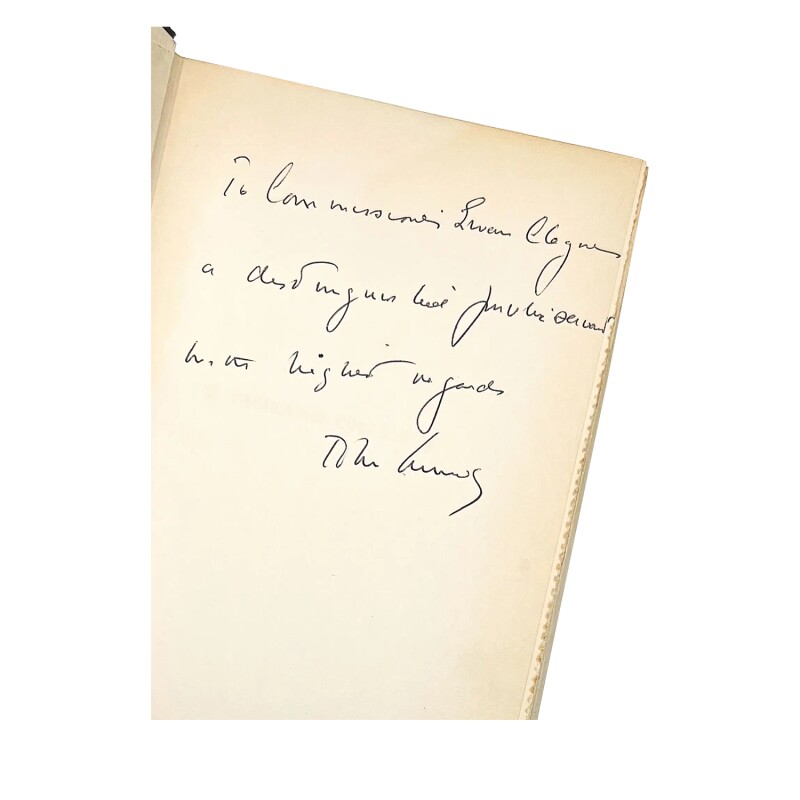 To Commissioner Ewan Clague
a distinguished public servant
with highest regards
John Kennedy